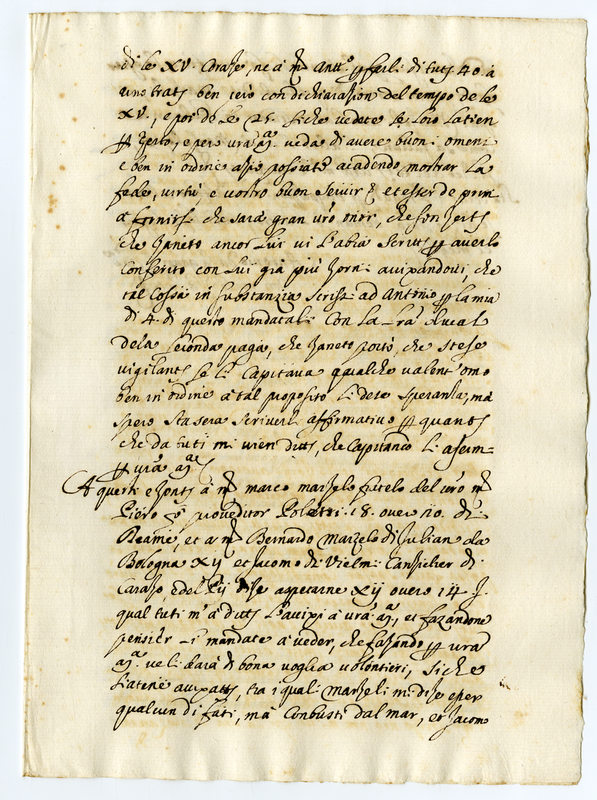 di le XV. Coraze, ne à mʳ Antᵒ. ꝑ farli di tuti 40 à
uno trato ben seio con dichiarazion del tempo de le
XV, e poi de le 25. siche vedete se loro la tien
ꝑ zerto, e però vrã mᵃ. veda di avere buoni omeni
e ben in ordine azio possiate acadendo mostrar la
fede, virtù, e vostro buon servir et esser de primi
a fornirse che sarà gran vr̃o onor, che son zerto
che Zaneto ancor lui vi l'abia scritto ꝑ averlo
Conferito con lui già più zorni avixandovi, che
tal Cossa in substanzia scrisse ad Antonio ꝑ la mia
di 4. di questo mandatali con la lr̃a ducal
dela seconda paga, che Zaneto portò, che stese
vigilante se li Capitava qualche valent' omo
ben in ordine à tal proposito li dete speranza, mà
spero stasera scriverli affirmativo ꝑ quanto
che da tuti mi vien dito, che Capitando li aserm=
ꝑ vrã mᵃ
A questi è zonti à mʳ marco marzelo fratelo del vr̃o mʳ
Piero proveditor Poletri. 18. over 20. di
Reame, et a mʳ Bernardo Marzelo di Julian da
Bologna XIJ et Jacomo di Vielmi Canzilier di
Carazo, dise aspetarne XIJ overo 14 J.
qual tuti m'à dito l'avixi à vrã mᵃ, et fazandone
pensier li mandate à veder, che fazando ꝑ vrã
mᵃ. ve li darà di bona voglia volontieri, siche
siatene avixato, tra i quali marzeli mi dise esser
qualcun di fati, mà Conbusti dal mar, et Jacomo